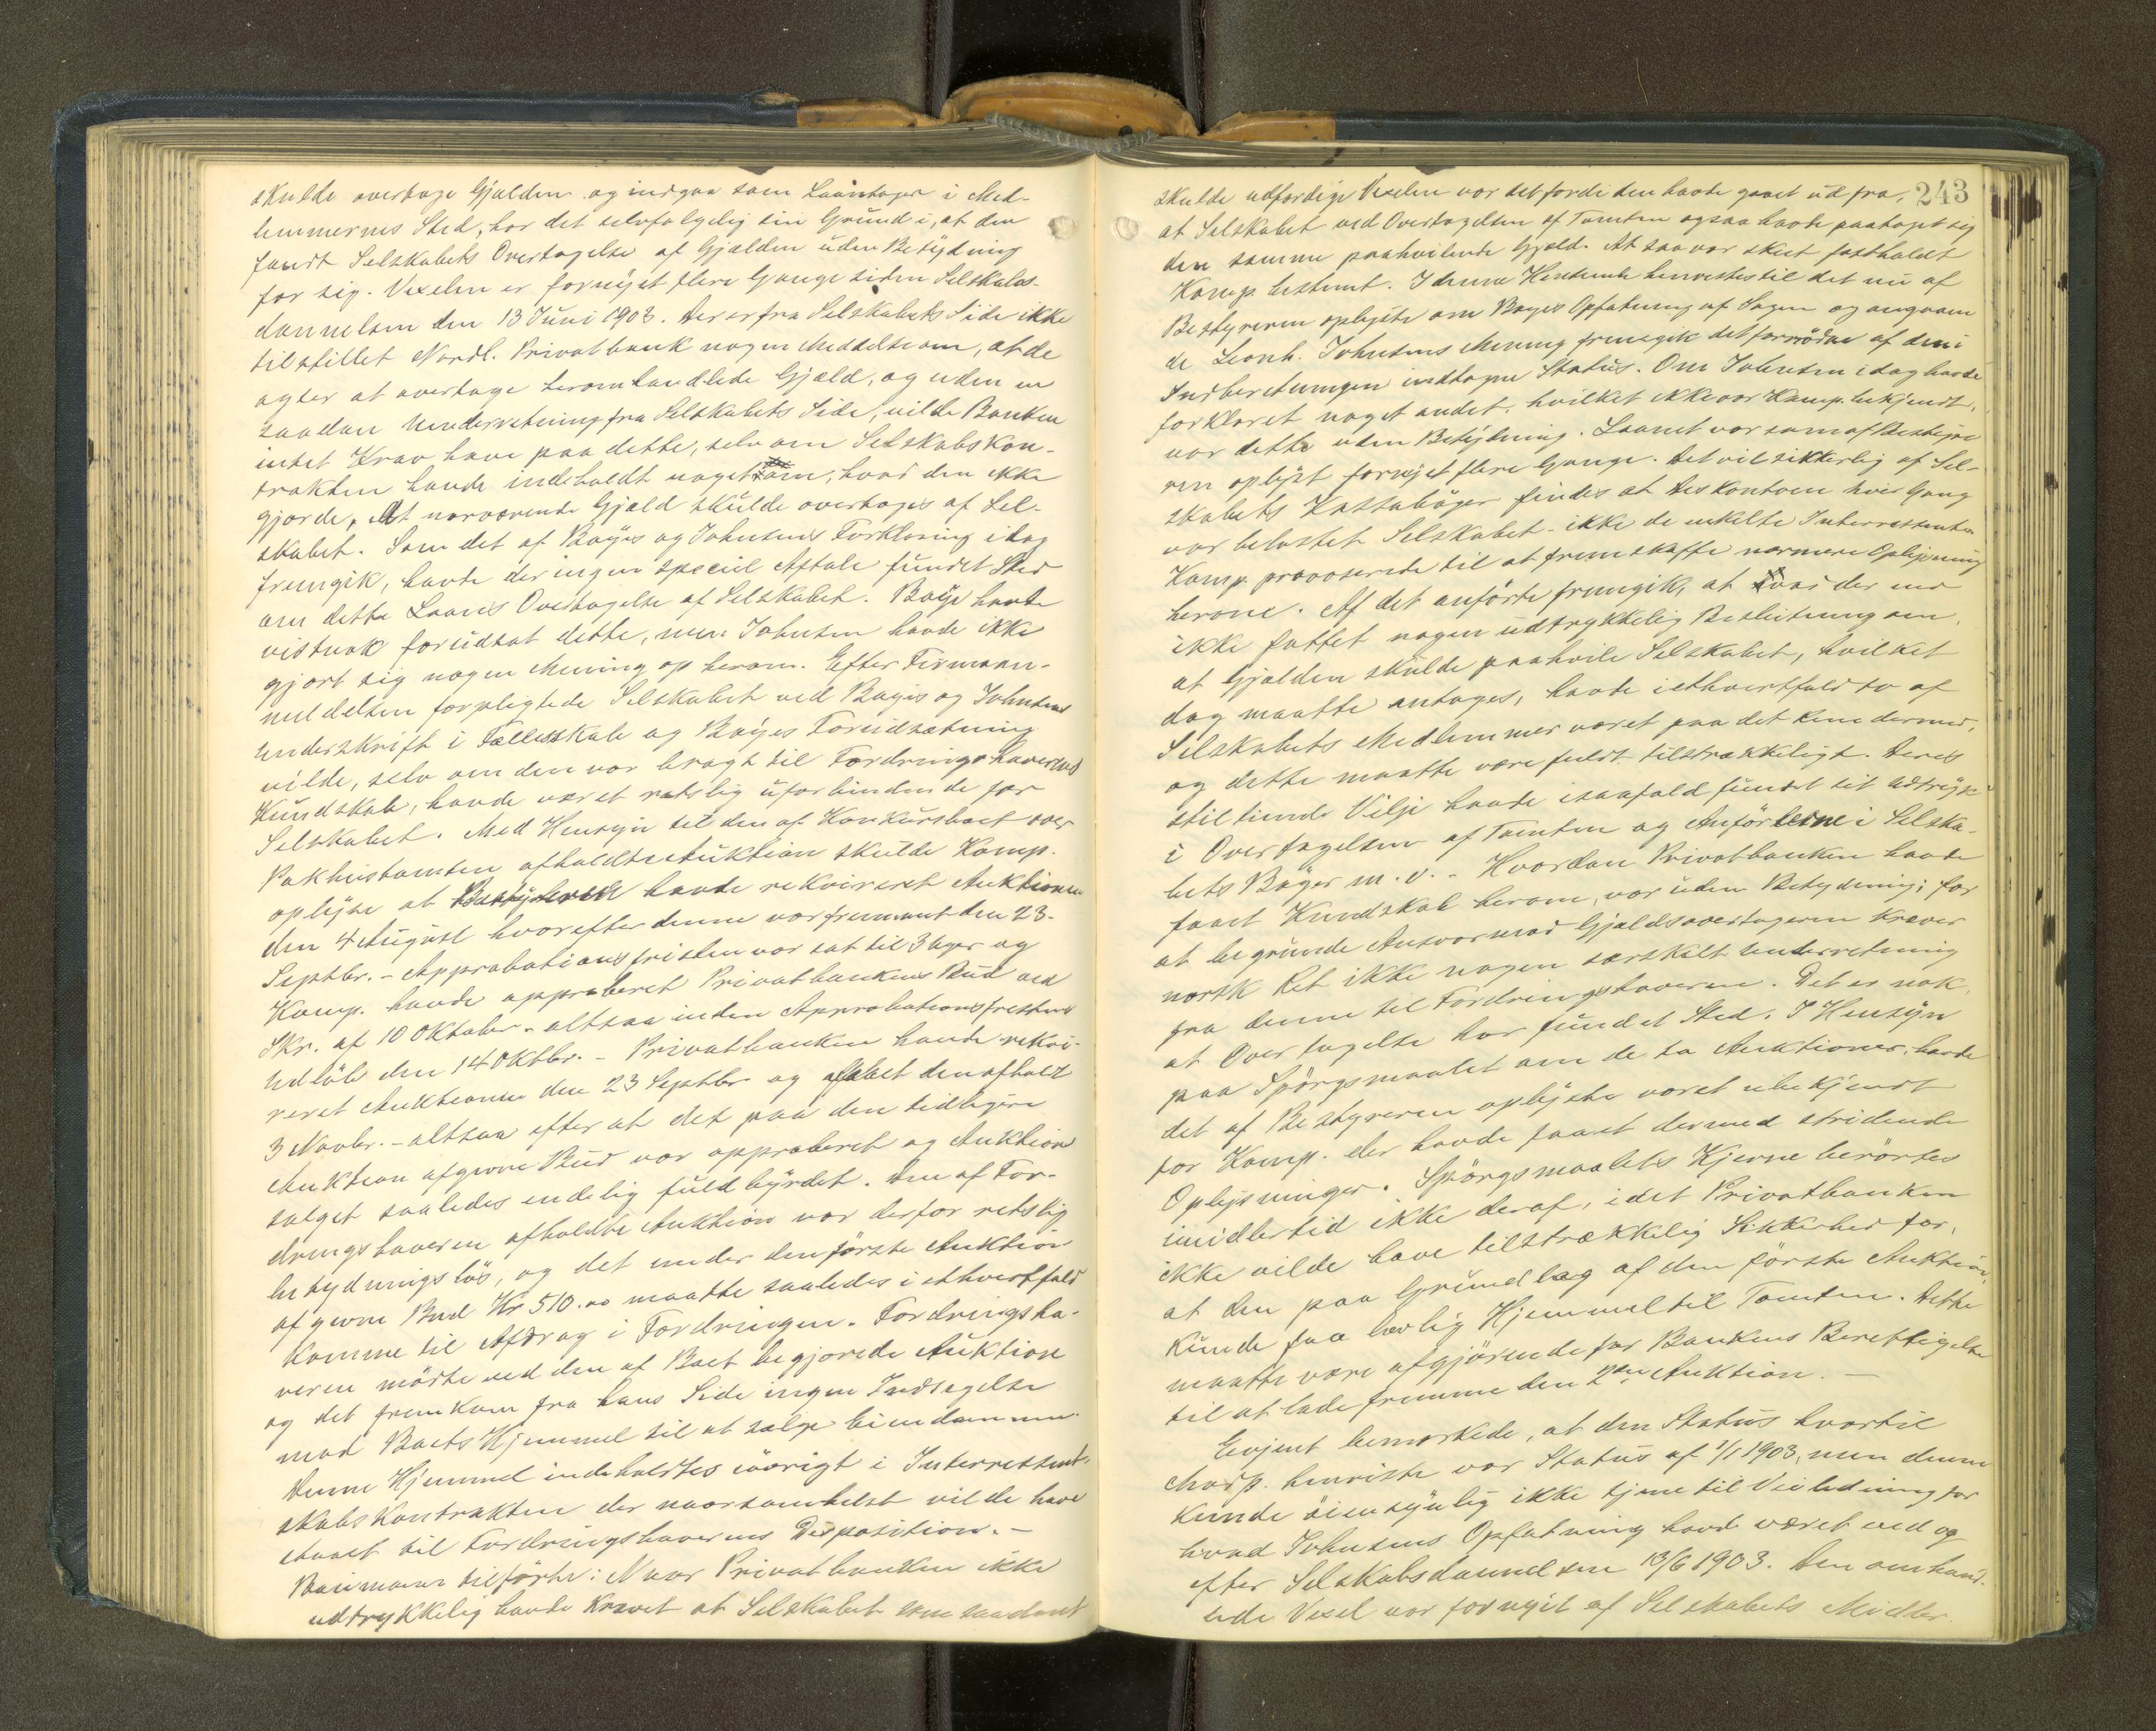 skulde overtage Gjælden og indgaa som Laantager i Med-
lemmernes Sted, har det selvfølgelig sin Grund i, at den
fandt Selskabets Overtagelse af Gjælden uden Betydning
for sig. Vexelen er fornyet flere Gange siden Selskabs-
dannelsen den 13 Juni 1903. Der er fra Selskabets Side ikke
tilstillet Nordl. Privatbank nogen Meddelelse om, at de
agter at overtage heromhandlede Gjæld, og uden en
saadan Underretning fra Selskabets Side, vilde Banken
intet Krav have paa dette, selv om Selskabskon-
trakten havde indeholdt noget om, hvad den ikke
gjorde, At nærværende Gjæld skulde overtages af Sel-
skabet. Som det af Bøyes og Johnsens Forklaring idag
fremgik, havde der ingen speciel Aftale fundet Sted
om dette Laans Overtagelse af Selskabet. Bøye havde
vistnok forudsat dette, men Johnsen havde ikke
gjort sig nogen Mening op herom. Efter Firmaan-
meldelsen forpligtede Selskabet ved Bøyes og Johnsens
Underskrift i Fællesskab og Bøyes Forudsætning
vilde, selv om den var bragt til Fordringshaverens
Kundskab, havde været retslig uforbindende for
Selskabet. Med Hensyn til den af Konkursboet over
Pakhustomten afholdte Auktion skulde Komp.
oplyse at Bestyreren havde rekvireret Auktionen
den 4 August hvorefter denne var fremmet den 23-
Septbr. - Approbationsfristen var sat til 3 Uger og
Komp. havde approberet Privatbankens Bud ved
Skr. af 10 Oktober - altsaa inden Approbationsfristens
Udløb den 14 Oktbr. - Privatbanken havde rekvi-
reret Auktionen den 23 Septbr og faaet den afholdt
3 Novbr. - altsaa efter at det paa den tidligere
Auktion afgivne Bud var approberet og Auktions
salget saaledes endelig fuldbyrdet. Den af For-
dringshaveren afholdte Auktion var derfor retslig
betydningsløs, og det under den første Auktion
afgivne Bud Kr 510.00 maatte saaledes i ethvertfald
komme til Afdrag i Fordringen. Fordringsha-
veren mødte ved den af Boet begjærede Auktion
og det fremkom fra hans Side ingen Indsigelse
mod Boets Hjemmel til at sælge Eiendommen.
Denne Hjemmel indeholdtes iøvrigt i Interressent-
skabskontrakten der naarsomhelst vilde have
staaet til Fordringshaverens Disposition. -
Baumann tilførte: Naar Privatbanken ikke
udtrykkelig havde krævet at Selskabet som saadant
243
skulde udfærdige Vexelen var det fordi den havde gaaet ud fra,
at Selskabet ved Overtagelsen af Tomten ogsaa havde paataget sig
den samme paahvilende Gjæld. At saa var skeet fastholdt
Komp. bestemt. I denne Henseende henvistes til det nu af
Bestyreren oplyste om Bøyes Opfatning af Sagen og angaaen
de Leonh. Johnsens Mening fremgik det formodne af den i
Indberetningen indtagne Status. Om Johnsen idag havde
forklaret noget andet, hvilket ikke var Komp. bekjendt,
var dette uden Betydning. Laanet var som af Bestyre
ren oplyst fornyet flere Gange. Det vil sikkerlig af Sel-
skabets Kassabøger findes at Diskontoen hver Gang
var belastet Selskabet - ikke de enkelte Interressenter
Komp. provoserede til at fremskaffe nærmere Oplysning
herom. Af det anførte fremgik, at var der end
ikke fattet nogen udtrykkelig Beslutning om,
at Gjælden skulde paahvile Selskabet, hvilket
dog maatte antages, havde i ethvertfald to af
Selskabets Medlemmer været paa det Rene dermed,
og dette maatte være fuldt tilstrækkeligt. Deres
stiltiende Vilje havde isaafald fundet sit Udtryk
i Overtagelsen af Tomten og Anførslerne i Selska-
bets Bøger m. v. - Hvordan Privatbanken havde
faaet Kundskab herom, var uden Betydning; for
at begrunde Ansvar mod Gjældsovertageren kræver
norsk Ret ikke nogen særskilt Underretning
fra denne til Fordringshaveren. Det er nok,
at Overtagelse har fundet Sted. I Hensyn
paa Spørgsmaalet om de to Auktioner, havde
det af Bestyreren oplyste været ubekjendt
for Komp. der havde faaet dermed stridende
Oplysninger. Spørgsmaalets Kjerne berørtes
imidlertid ikke deraf, idet Privatbanken
ikke vilde have tilstrækkelig Sikkerhed for,
at den paa Grundlag af den første Auktion
kunde faa lovlig Hjemmel til Tomten. Dette
maatte være afgjørende for Bankens Berettigelse
til at lade fremme den 2den Auktion. -
Evjent bemærkede, at den Status hvortil
Modp. henviste var Status af 1/1 1903, men denne
kunde øiensynlig ikke tjene til Veiledning for
hvad Johnsens Opfatning havde været ved og
efter Selskabsdannelsen 13/6 1903. Den omhand-
lede Vexel var fornyet af Selskabets Midler.